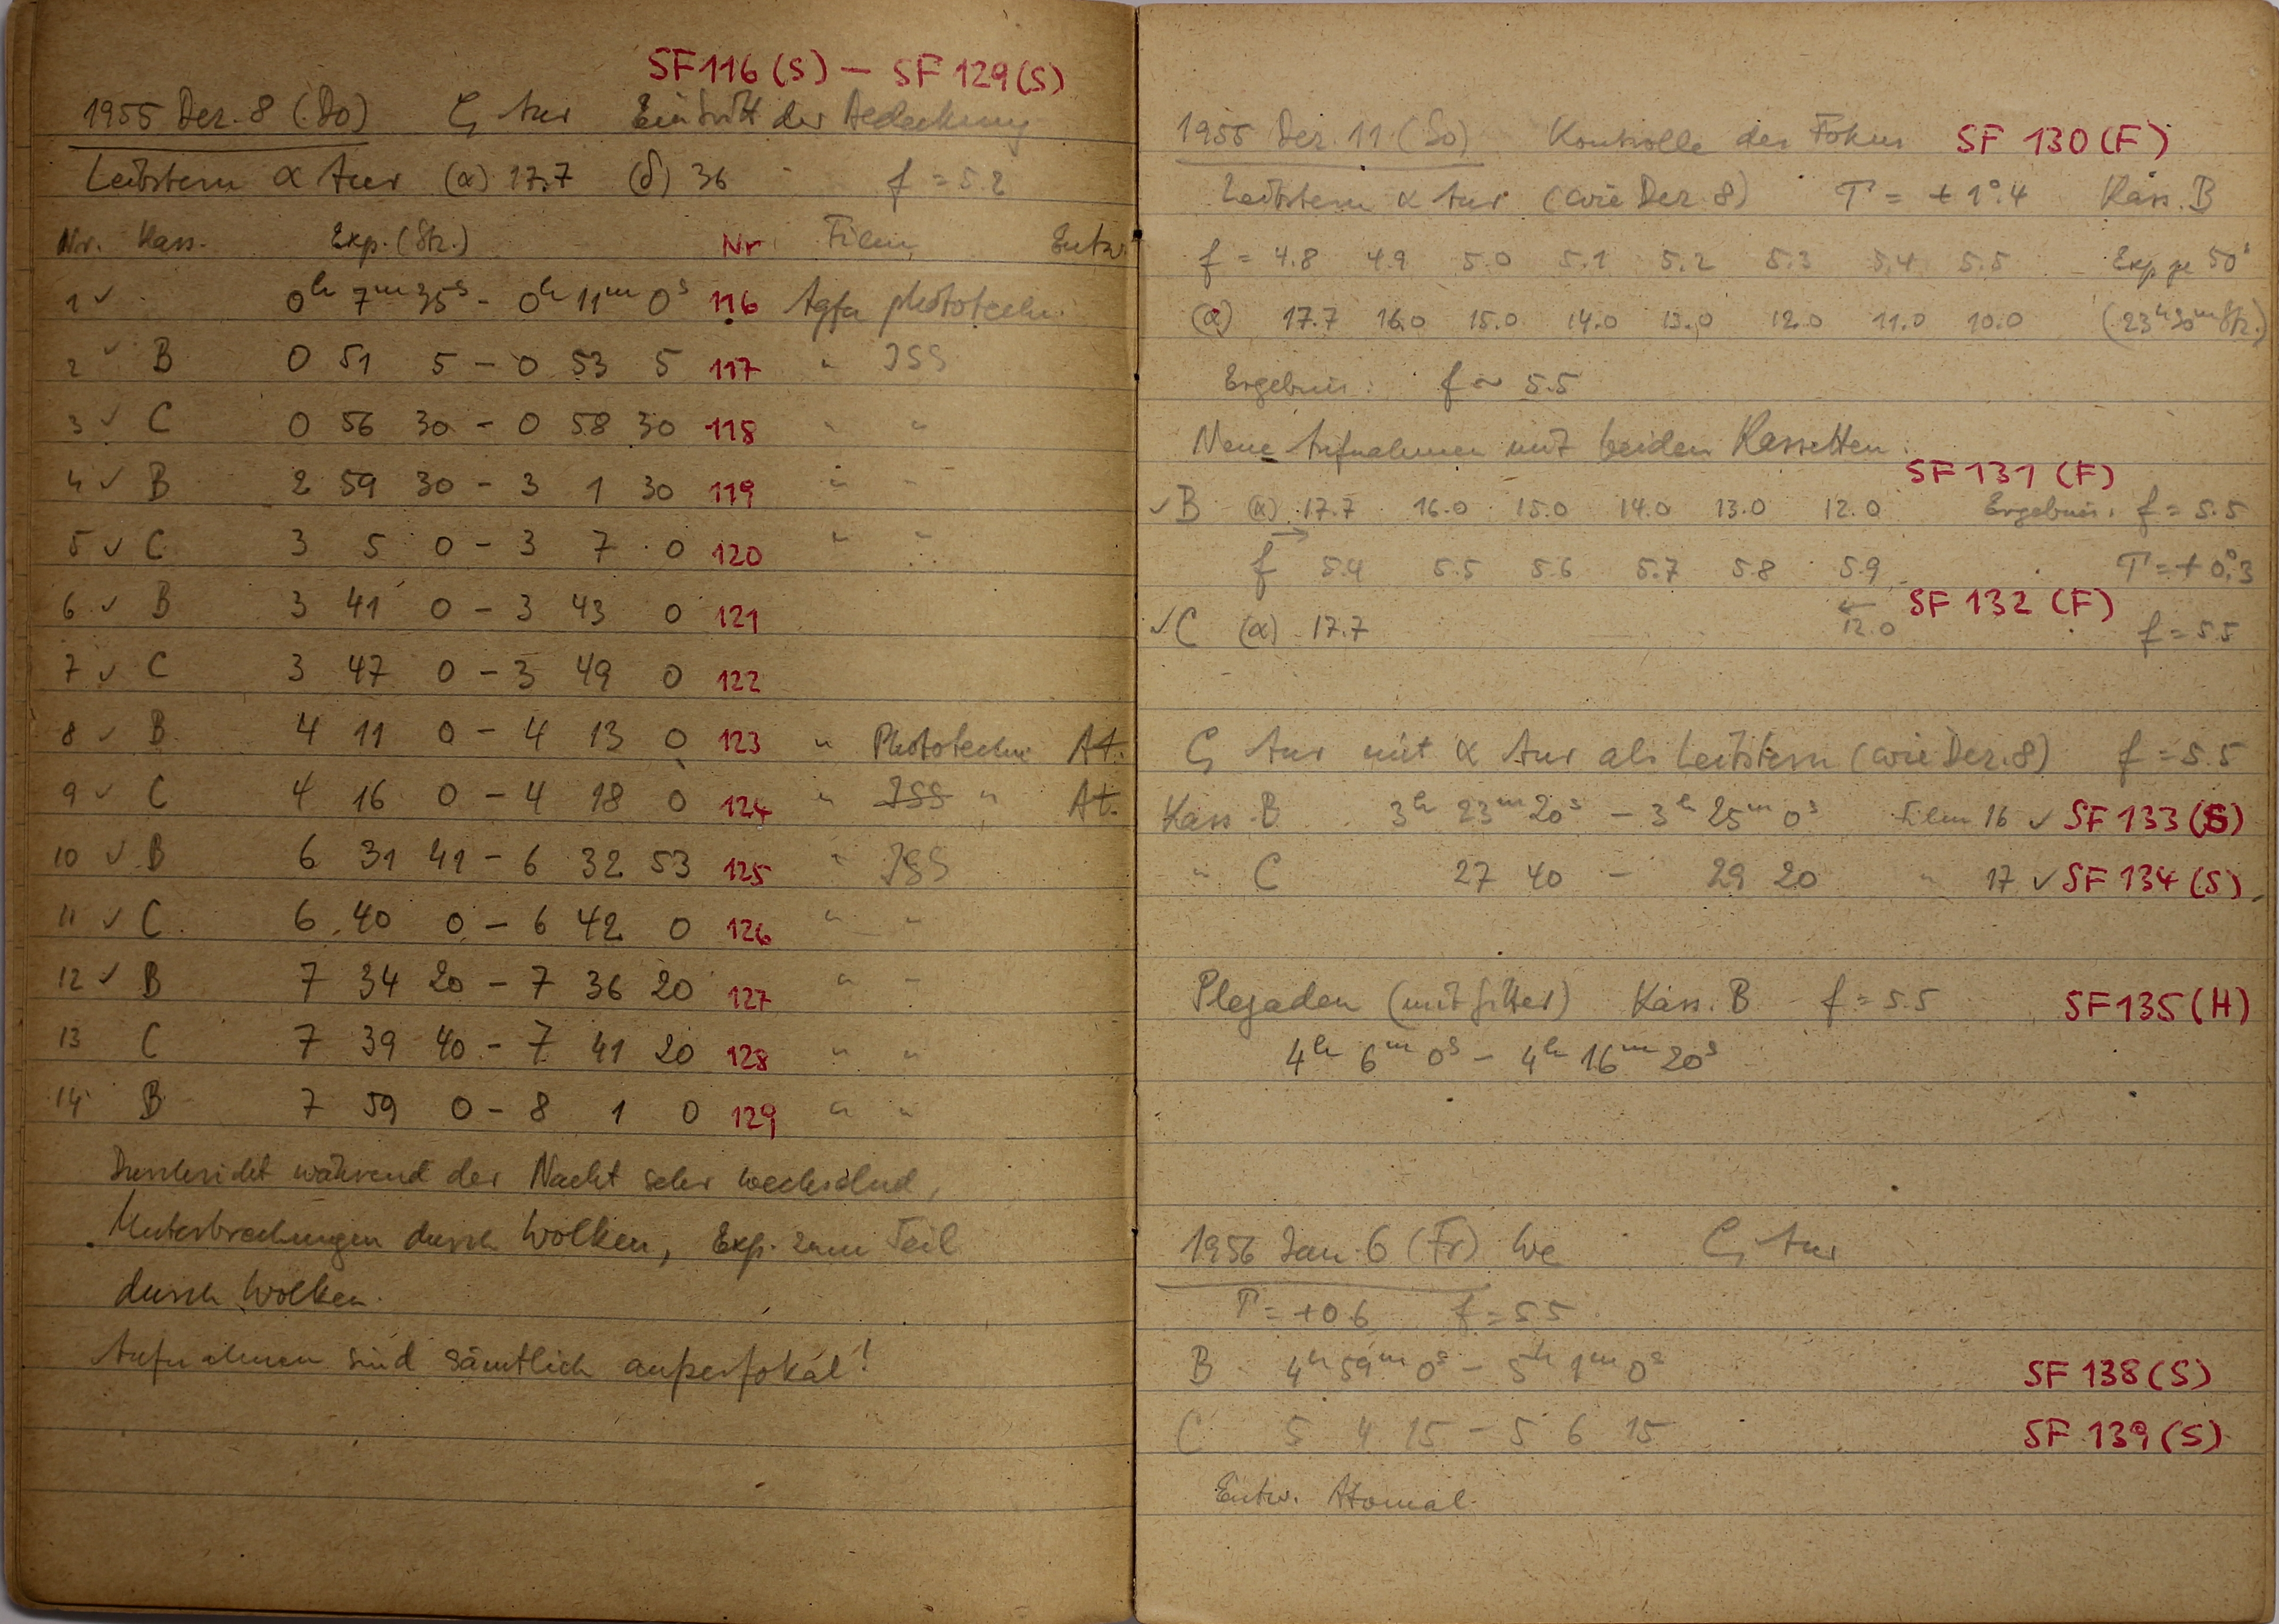 SF116 (S) — SF 129 (S)
1955 Dez. 8 (Do) ζ Aur Eintritt der Bedeckung
Leitstern α Aur (α) 17.7 (δ) 36 f = 5.2
Nr. Kass. Exp. (Stz.) Nr Film Entw.
1 ✓ 0h 7m 35s - 0h 11m 0s 116 Agfa phototechn.
2 ✓ B 0 51 5 - 0 53 5 117 " ISS
3 ✓ C 0 56 30 - 0 58 30 118 " "
4 ✓ B 2 59 30 - 3 1 30 119 " "
5 ✓ C 3 5 0 - 3 7 0 120 " "
6 ✓ B 3 41 0 - 3 43 0 121
7 ✓ C 3 47 0 - 3 49 0 122
8 ✓ B 4 11 0 - 4 13 0 123 " Phototechn. At.
9 ✓ C 4 16 0 - 4 18 0 124 " ISS " At.
10 ✓ B 6 31 41 - 6 32 53 125 " ISS
11 ✓ C 6 40 0 - 6 42 0 126 " "
12 ✓ B 7 34 20 - 7 36 20 127 " "
13 C 7 39 40 - 7 41 20 128 " "
14 B 7 59 0 - 8 1 0 129 " "
Durchsicht während der Nacht sehr wechselnd,
Unterbrechungen durch Wolken, Exp. zum Teil
durch Wolken.
Aufnahmen sind sämtlich außerfokal!
1955 Dez. 11 (So) Kontrolle des Fokus SF 130 (F)
Leitstern α Aur (wie Dez. 8) T = + 1°.4 Kass. B
f = 4.8 4.9 5.0 5.1 5.2 5.3 5.4 5.5 Exp. je 50s
(α) 17.7 16.0 15.0 14.0 13.0 12.0 11.0 10.0 (23h30m Stz.)
Ergebnis: f ~ 5.5
Neue Aufnahmen mit beiden Kassetten.
SF 131 (F)
✓ B (α) 17.7 16.0 15.0 14.0 13.0 12.0 Ergebnis: f = 5.5
→
f 5.4 5.5 5.6 5.7 5.8 5.9 T = + 0°.3
SF 132 (F)
✓ C (α) 17.7 ← 12.0 f = 5.5
ζ Aur mit α Aur als Leitstern (wie Dez. 8) f = 5.5
Kass. B 3h 23m 20s - 3h 25m 0s Film 16 ✓ SF 133 (S)
" C 27 40 - 29 20 " 17 ✓ SF 134 (S)
Plejaden (mit Gitter) Kass. B f = 5.5 SF 135 (H)
4h 6m 0s - 4h 16m 20s
1956 Jan. 6 (Fr) We ζ Aur
T = +0.6 f = 5.5
B 4h 59m 0s - 5h 1m 0s SF 138 (S)
C 5 4 15 - 5 6 15 SF 139 (S)
Entw. Atomal